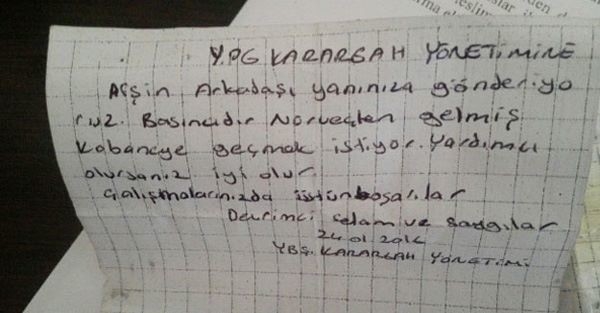 YPG KARARGAH YÖNETİMİNE
Afşin Arkadaşı yanınıza gönderiyo
ruz. Basıncıdır Norveçten gelmiş
Kobaneye geçmek istiyor. Yardımcı
olursanız iyi olur
Çalışmalarınızda üstün başarılar
Devrimci selam ve saygılar
24 01 2016
YBŞ. KARARGAH YÖNETİMİ